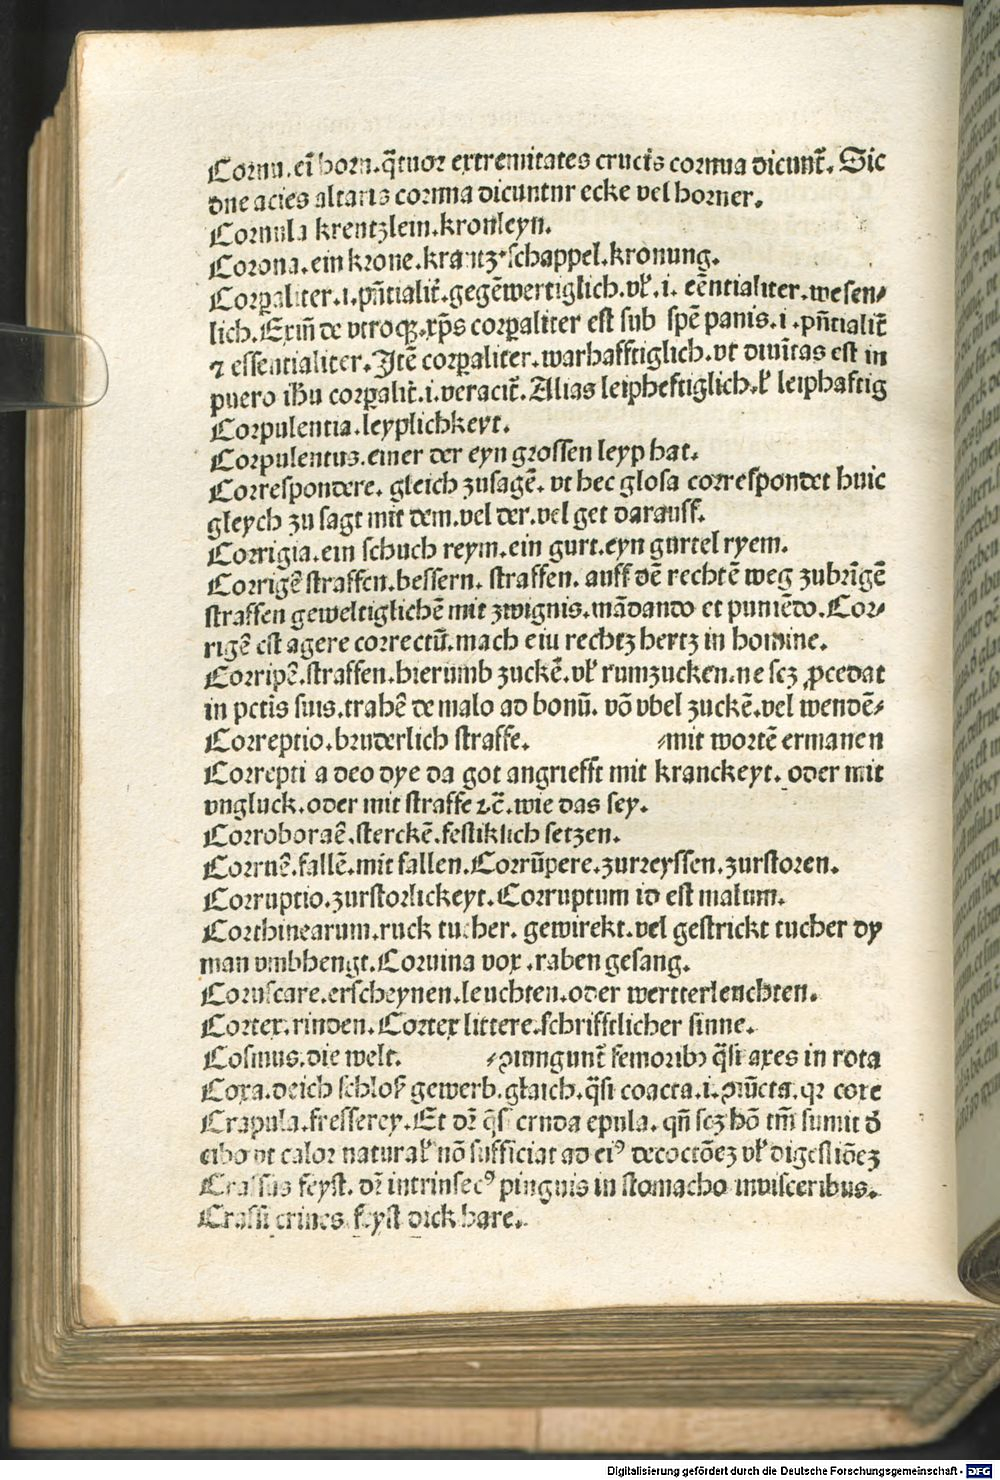 Cornu.ei̅ horn.q̅tuor extremitates crucis cornua dicunt̅. Sic
due acies altaris cornna dicuntnr ecke vel horner.
Cornula krentzlein.kronleyn.
Corona.ein krone.krantz.schappel.kronung.
Corꝑaliter.i.pn̅tialit̅.gege̅wertiglich.vl̕.i. ee̅ntialiter.wesen⸗
lich.Exiu̅ de vtroqꝫ.xp̅s corꝑaliter est sub spe̅ panis.i.pn̅tialit̅
⁊ essentialiter.Ite̅ corꝑaliter.warhafftiglich.vt diui̅tas est in
puero ih̅u corꝑalit̅.i.veracit̅.Alias leipheftiglich.l̕ leiphaftig
Corpulentia.leyplichkeyt.
Corpulentus.einer der eyn grossen leyp hat.
Correspondere. gleich zusage̅. vt hec glosa correspondet huic
gleych zu sagt mit dem.vel der.vel get darauff.
Corrigia.ein schuch reym.ein gurt.eyn gurtel ryem.
Corrige̅ straffen.bessern. straffen. auff de̅ rechte̅ weg zubri̅ge̅
straffen geweltigliche̅ mit zwignis.ma̅dando et punie̅do.Cor⸗
rige̅ est agere correctu̅.mach eiu rechtz hertz in homine.
Corripe̅.straffen.hierumb zucke̅.vl̕ rumzucken.ne seꝫ ꝓcedat
in pctis suis.trahe̅ de malo ad bonu̅. vo̅ vbel zucke̅.vel wende̅⸗
Correptio.bruderlich straffe. ⸗mit worte̅ ermanen
Correpti a deo dye da got angriefft mit kranckeyt. oder mit
vngluck.oder mit straffe ⁊c̅.wie das sey.
Corroborae̅.stercke̅.festiklich setzen.
Corrue̅.falle̅.mit fallen.Corru̅pere.zurreyssen.zurstoren.
Corruptio.zurstorlickeyt.Corruptum id est malum.
Corthinearum.ruck tucher. gewirekt.vel gestrickt tucher dy
man vmbhengt.Coruina vox.raben gesang.
Coruscare.erscheynen.leuchten.oder wertterlenchten.
Cortex.rinden.Cortex littere.schrifftlicher sinne.
Cosmus.die welt. ⸗ꝯiungunt̅ femoribꝫ q̅si axes in rota
Coxa.deich schloß gewerb.glaich.q̅si coacta.i.ꝯiu̅cta.qꝛ coxe
Crapula.fresserey.Et dꝛ̅ q̅si crnda epula. qn̅ seꝫ ho̅ tm̅ sumit ð
cibo vt calor natural̕ no̅ sufficiat ad eiꝰ decoctoe̅ꝫ vl̕ digestioe̅ꝫ
Crassus feyst. dꝛ̅ intrinsecꝰ pinguis in stomacho inuisceribus.
Crassi crines. feyst dick hare.
Digitalisierung gefördert durch die Deutsche Forschungsgemeinschaft - DFG